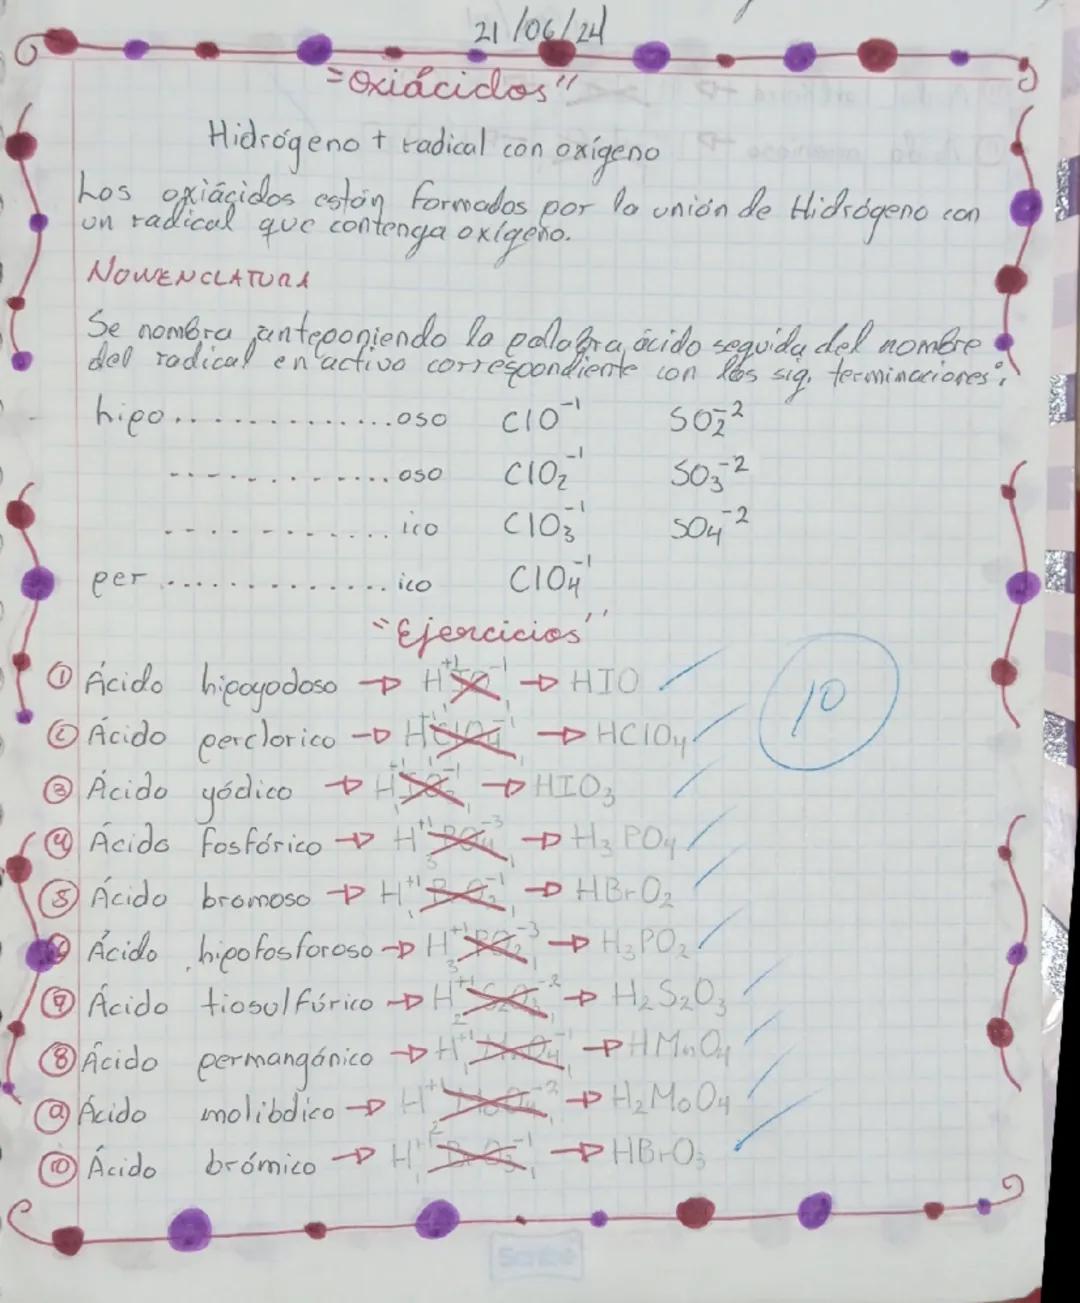 21/06/24
"Oxiácidos"
Hidrógeno + radical con oxígeno
Los oxiácidos están formados por la unión de Hidrógeno con
un radical que contenga oxígeno.
NOMENCLATURA
Se nombra anteponiendo la palabra ácido seguida del nombre
del radical en activo correspondiente con los sig. terminaciones:
hipo..............oso ClO⁻¹ SO₂⁻²
..............oso ClO₂⁻¹ SO₃⁻²
..............ico ClO₃⁻¹ SO₄⁻²
per..............ico ClO₄⁻¹
"Ejercicios"
① Ácido hipoyodoso → H⁺¹IO⁻¹ → HIO
② Ácido perclorico → H⁺¹ClO₄⁻¹ → HClO₄
③ Ácido yódico → H⁺¹IO₃⁻¹ → HIO₃
④ Ácido fosfórico → H⁺¹PO₄⁻³ → H₃PO₄
⑤ Ácido bromoso → H⁺¹BrO₂⁻¹ → HBrO₂
⑥ Ácido hipofosforoso → H⁺¹PO₂⁻³ → H₃PO₂
⑦ Ácido tiosulfúrico → H⁺¹S₂O₃⁻² → H₂S₂O₃
⑧ Ácido permangánico → H⁺¹MnO₄⁻¹ → HMnO₄
⑨ Ácido molibdico → H⁺¹MoO₄⁻² → H₂MoO₄
⑩ Ácido brómico → H⁺¹BrO₃⁻¹ → HBrO₃
10
Scribe